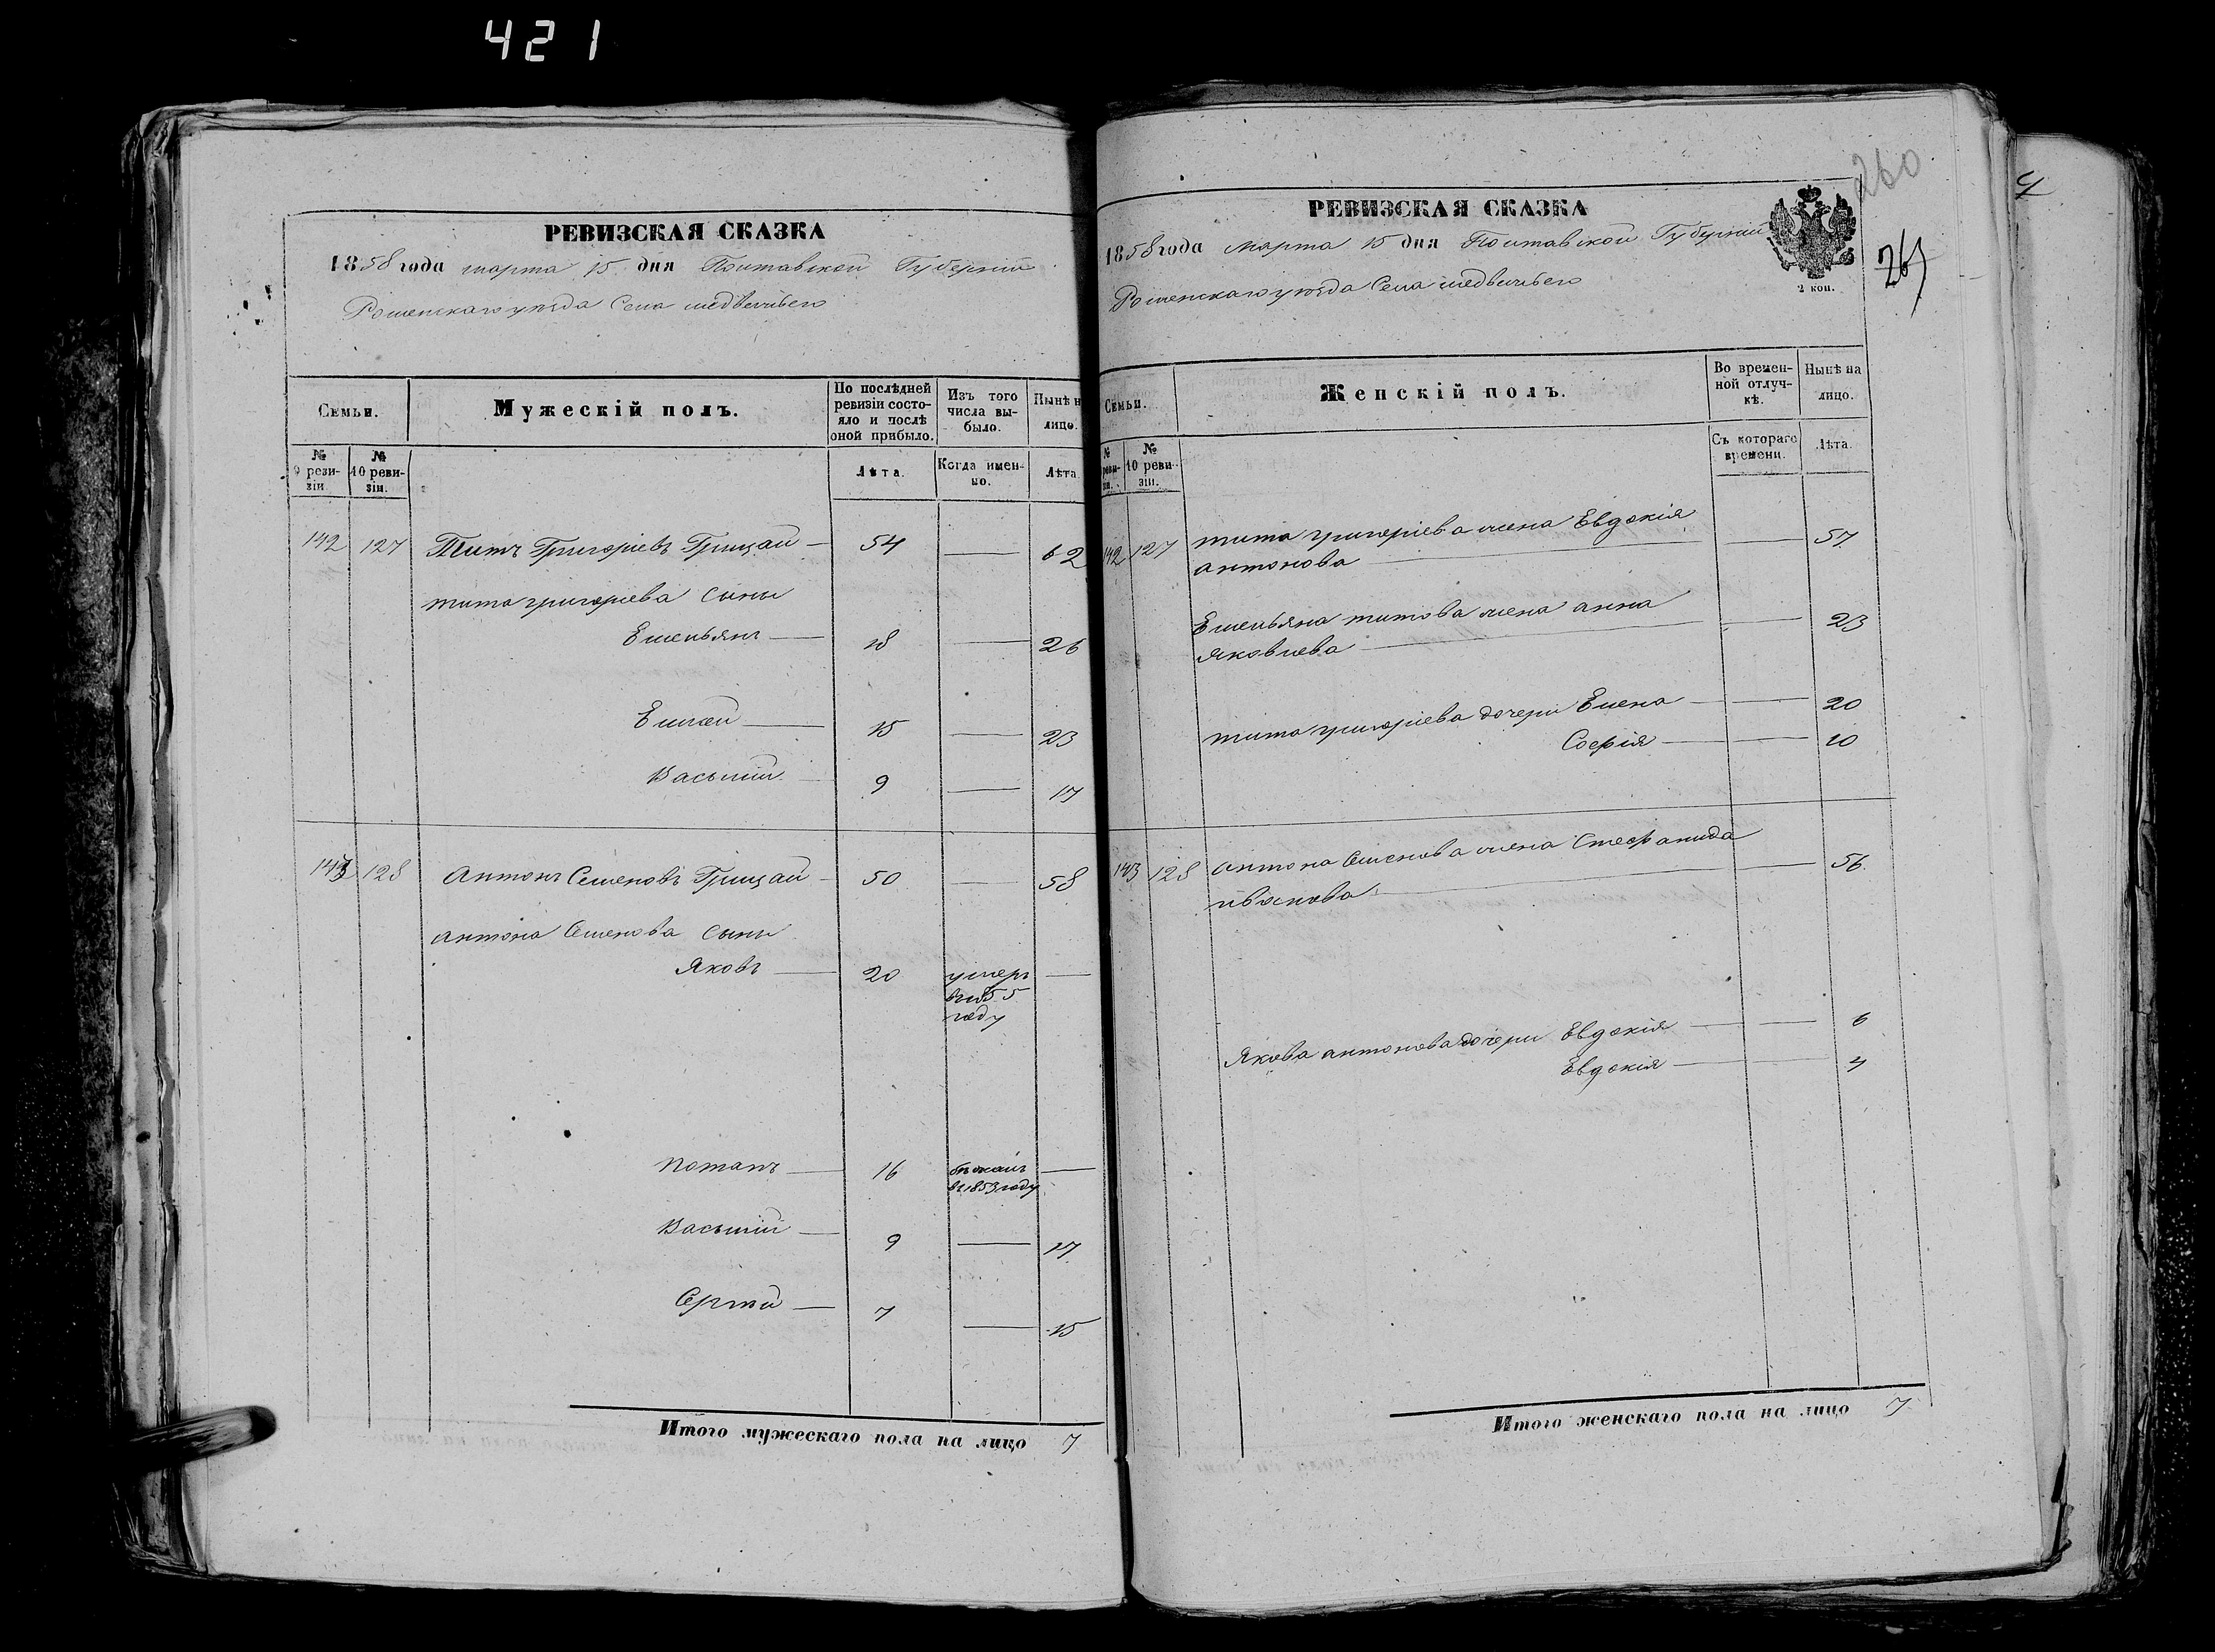 421
РЕВИЗСКАЯ СКАЗКА
1858 года марта 15 дня Полтавской Губерніи
Роменскаго уѣзда Села медвежьего
Семьи.
Мужескій полъ.
По послѣдней ревизіи состояло и послѣ оной прибыло.
Изъ того числа выбыло.
Нынѣ н лицо.
№ 9 ревизіи.
№ 10 ревизіи.
Лѣта.
Когда именно.
Лѣта.
142 127 Титъ Григоріевъ Грицай — 54 — 62
тита григоріева сыны
Емельянъ — 18 — 26
15 — 23
Василій — 9 — 17
143 128 Антонъ Семеновъ Грицай — 50 — 58
антона Семенова сыны
Яковъ — 20 умеръ —
въ 1855
году
Потапъ — 16 бѣжалъ —
въ 1853 году
Василій — 9 — 17
Сергій — 7 — 15
Итого мужескаго пола на лицо 7
260
РЕВИЗСКАЯ СКАЗКА
1858 года марта 15 дня Полтавской Губерніи
Роменскаго уѣзда Села медвежьего
2 коп.
Семьи.
Женскій полъ.
Во временной отлучкѣ.
Нынѣ на лицо.
№ ревизіи.
№ 10 ревизіи.
Съ котораго времени.
Лѣта.
142 127 тита григоріева жена Евдокія — 57
антонова —
Емельяна титова жена анна — 23
Яковлева —
тита григоріева дочери Елена — — 20
Софія — — 10
143 128 антона Семенова жена Стефанида — 56
иванова —
Якова антонова дочери Евдокія — — 6
Евдокія — — 4
Итого женскаго пола на лицо 7